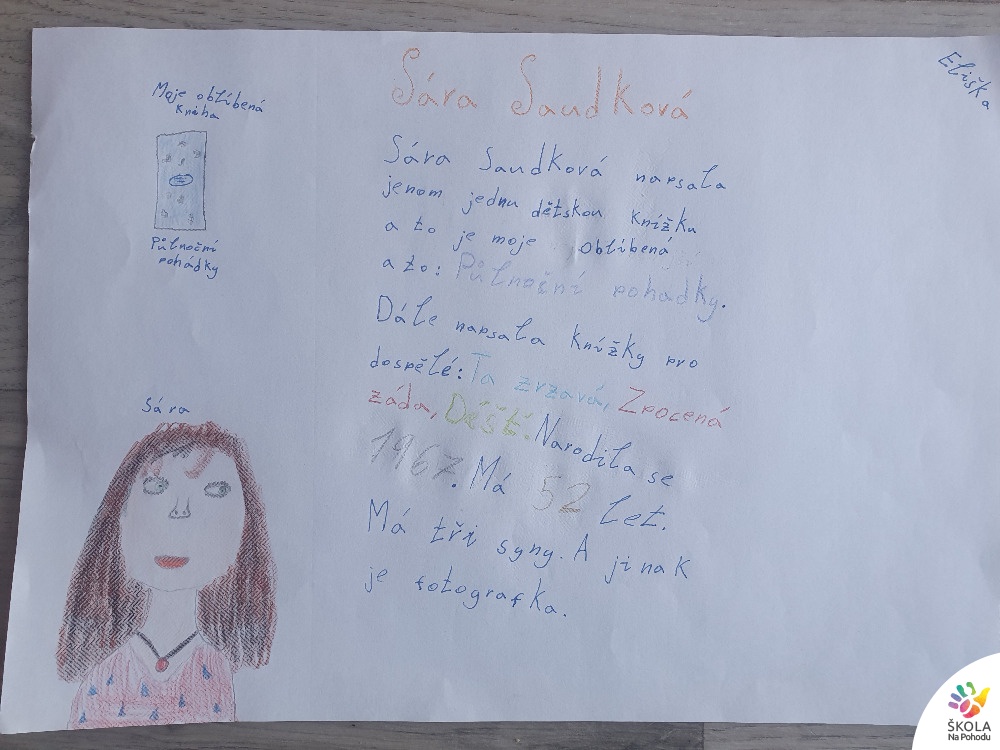 Sára Saudková
Eliška
Moje oblíbená
kniha
Půlnoční
pohádky
Sára Saudková napsala
jenom jednu dětskou knížku
a to je moje oblíbená
a to: Půlnoční pohadky.
Dále napsala knížky pro
dospělé: Ta zrzavá, Zpocená
záda, Déšť. Narodila se
1967. Má 52 let.
Má tři syny. A jinak
je fotografka.
Sára
ŠKOLA
Na Pohodu